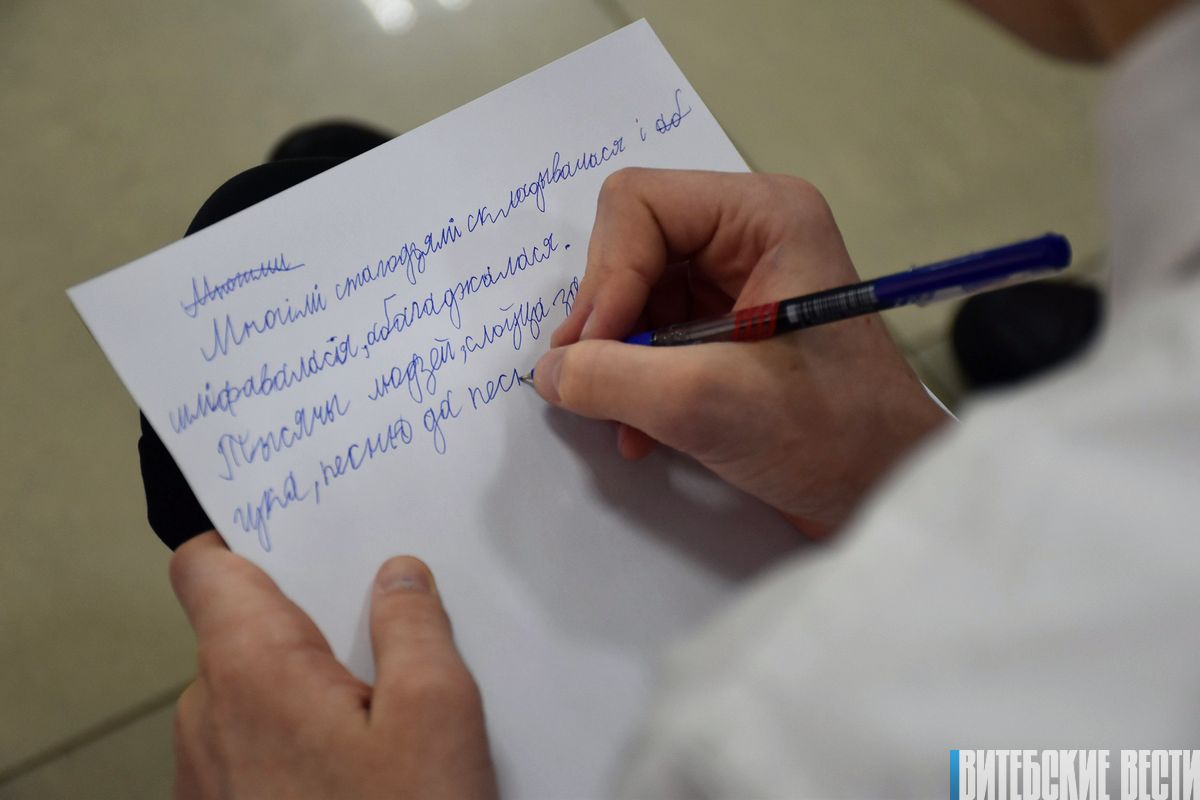 Многими
Многімі стагодзямі складывалася і аб
шліфавалася, абагаджалася.
Тысячы людзей, слоўца за
гука, песню да песн
ВИТЕБСКИЕ ВЕСТИ